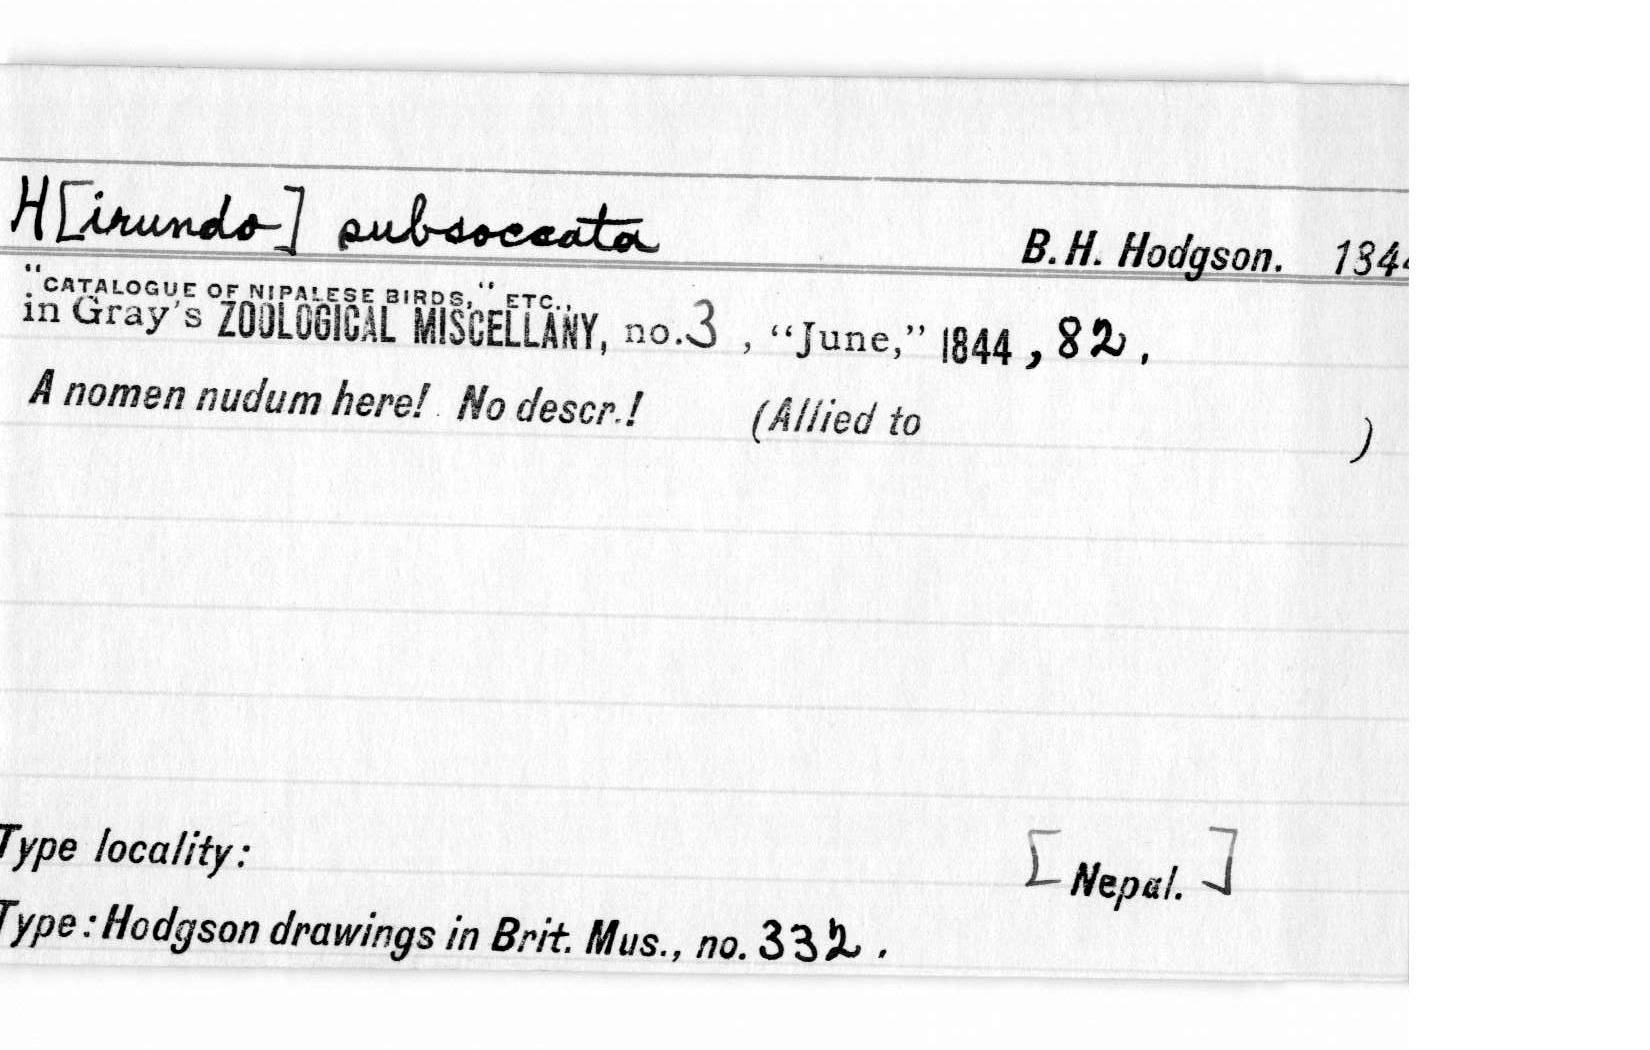 H[irundo] subsoccata B. H. Hodgson. 1844
"CATALOGUE OF NIPALESE BIRDS," ETC.,
in Gray's ZOOLOGICAL MISCELLANY, no. 3, "June," 1844, 82.
A nomen nudum here! No descr.! (Allied to )
Type locality: [Nepal.]
Type: Hodgson drawings in Brit. Mus., no. 332.